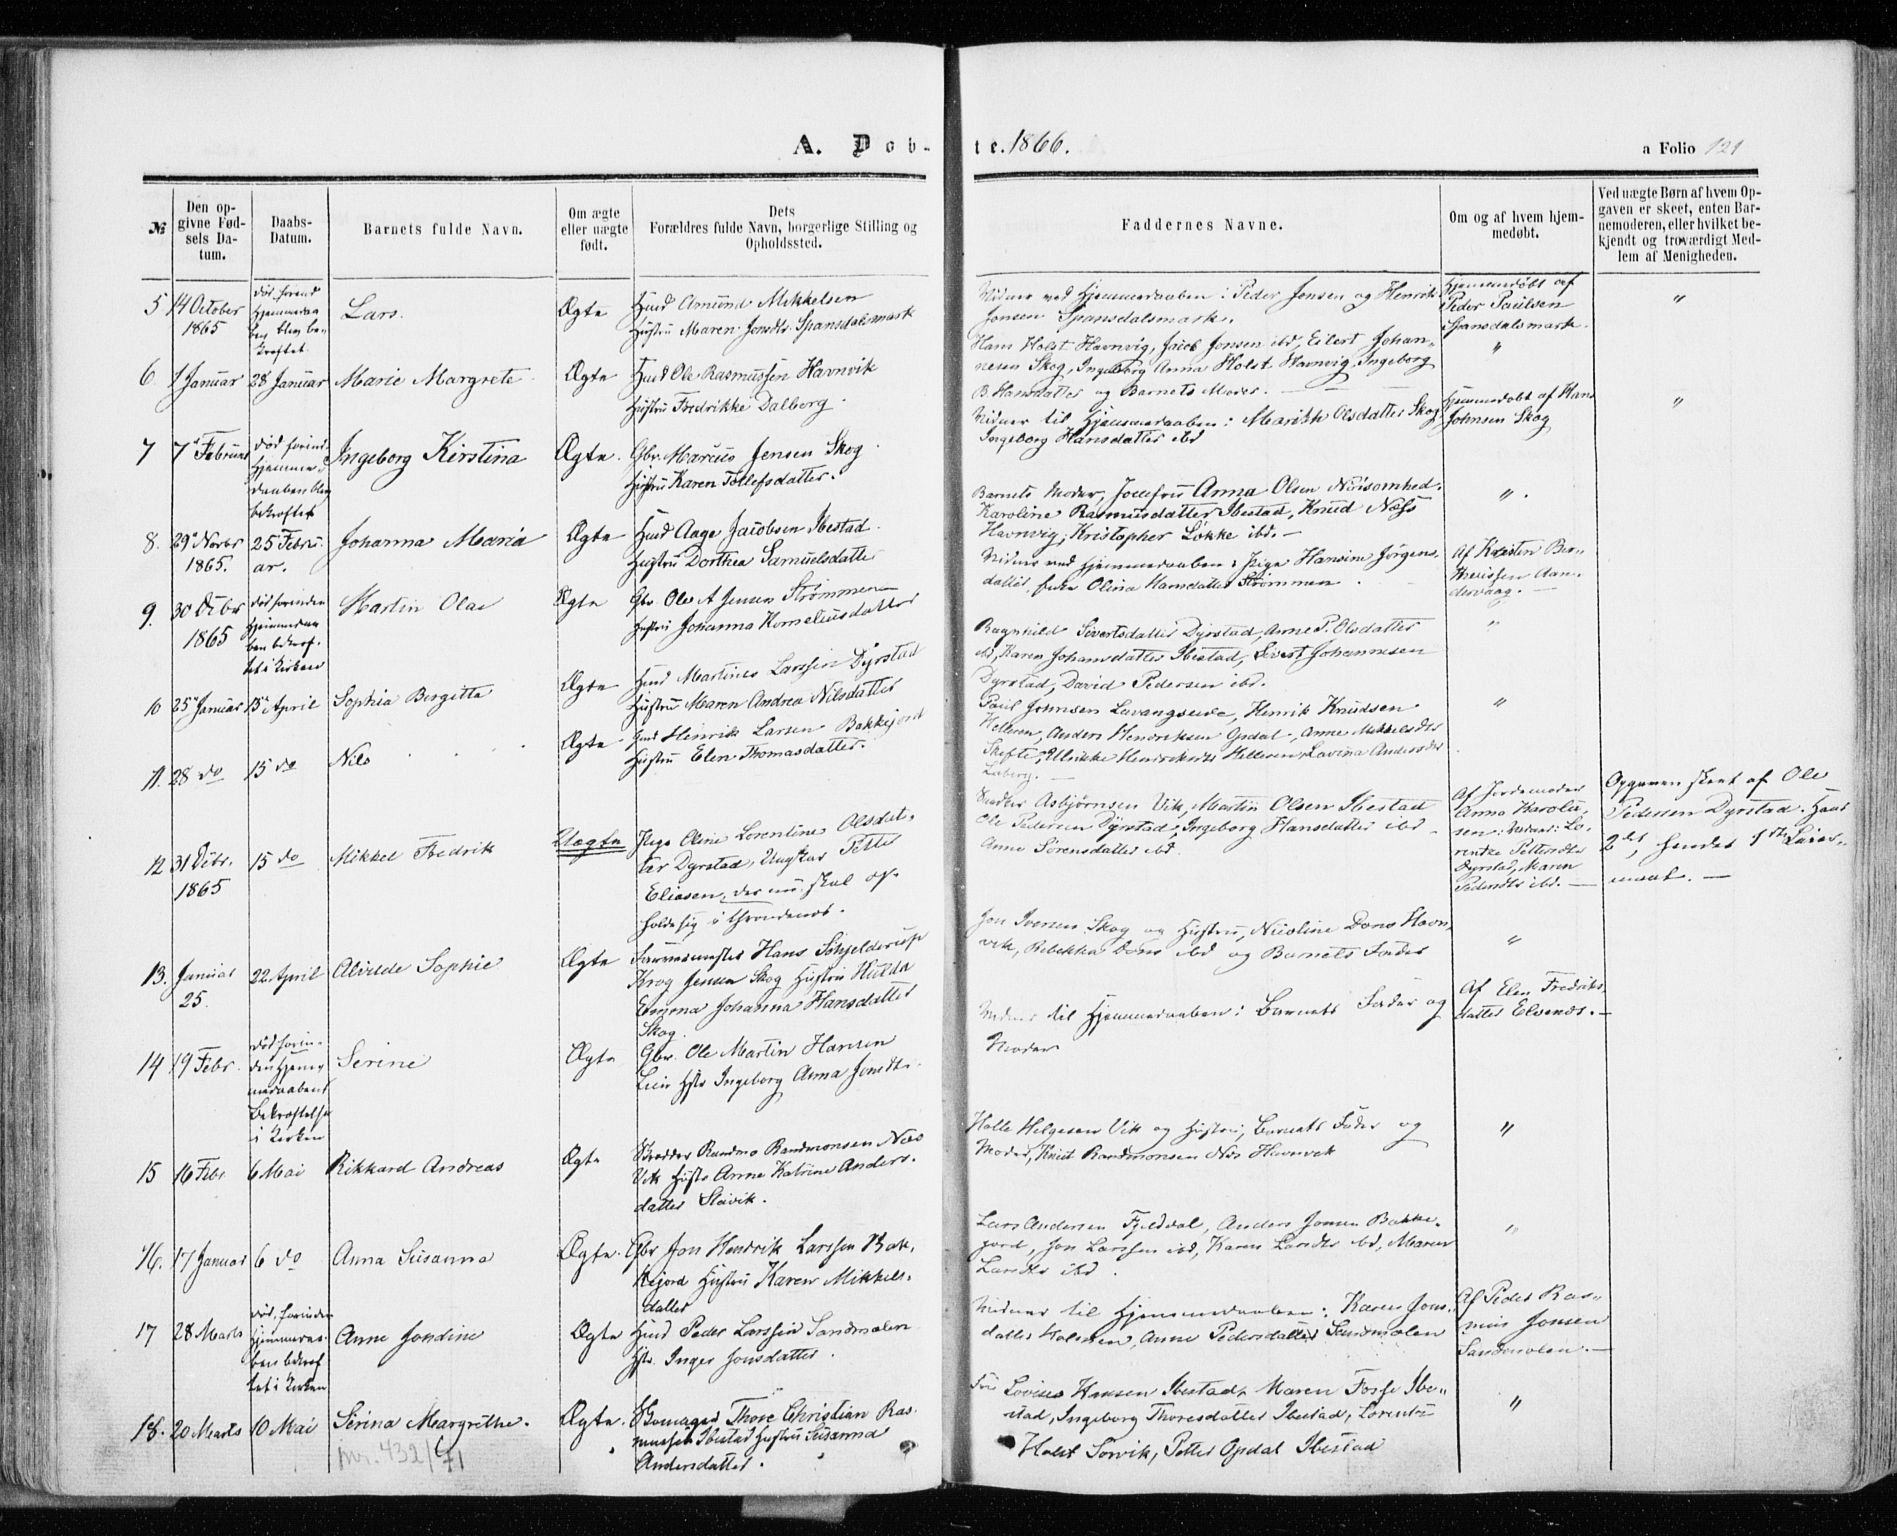 A. Døb-
te. 1866.
a Folio 121
№
Den op-
givne Fød-
sels Da-
tum.
Daabs-
Datum.
Barnets fulde Navn.
Om ægte
eller uægte
født.
Dets
Forældres fulde Navn, borgerlige Stilling og
Opholdssted.
Faddernes Navne.
Om og af hvem hjem-
medøbt.
Ved uægte Børn af hvem Op-
gaven er skeet, enten Bar-
nemoderen, eller hvilket be-
kjendt og troværdigt Med-
lem af Menigheden.
5
14 October
1865
død, forend
Hjemmedaa
ben blev be-
kræftet.
Lars.
Ægte
Huusd Amund Mikkelsen
Hustru Maren Jonsdtr. Spansdalsmark
Vidner ved Hjemmedaaben: Peder Jonsen og Henrik
Jonsen Spansdalsmark.
Hjemmedøbt af
Peder Paulsen
Spansdalsmark
"
6.
1 Januar
28 Januar
Marie Margrete
Ægte
Huusd Ole Rasmussen Havnvik
Hustru Fredrikke Dalberg.
Hans Holst Havnvig, Jacob Jensen ibd, Eilert Johan-
nesen Skog, Ingeborg Anna Holst Havnvig, Ingeborg
B. Hansdatter og Barnets Moder.
"
7
7de Februar
død forind
Hjemme-
daaben blev
bekræftet
Ingeborg Kirstina
Ægte.
Gbr. Marcus Jensen Skog
Hustru Karen Tollefsdatter.
Vidner til Hjemmedaaben: Marith Olsdatter Skog
Ingeborg Hansdatter ibd
Hjemmedøbt af Hans
Johnsen Skog
"
8.
29de Novbr
1865.
25 Febru-
ar.
Johanna Maria
Ægte
Huusd Aage Jacobsen Ibestad
Hustru Dorthea Samuelsdatter
Barnets Moder, Jomfru Anna Olsen Nøisomhed.
Karoline Rasmusdatter Ibestad, Knud Næss
Havnvig, Kristopher Løkke ibd.
"
9.
30 Dcbr
1865
død forinden
Hjemmedaa
ben bekræf-
tet i Kirken
Martin Olai
Ægte
Gbr. Ole A Jensen Strømmen
Hustru Johanna Korneliusdatter
Vidner ved Hjemmedaaben: Pige Hansine Jørgens-
datter, Olina Hansdatter Strømmen.
Af Kresten Ber-
theussen Aan-
dervaag.
10
25de Januar
15de April
Sophia Birgitta
Ægte
Huusd Martinus Larssen Dyrstad
Hustru Maren Andrea Nilsdatter
Ragnhild Sivertsdatter Dyrstad, Anne P. Olsdatter
ibd, Karen Johansdatter Ibestad, Sivert Johannesen
Dyrstad, David Pedersen ibd.
"
11.
28 do
15 do
Nils
Ægte
Huusd Henrik Larsen Bakkejord
Hustru Elen Thomasdatter.
Paul Johnsen Lavangseide, Henrik Knudsen
Helleren, Anders Hendriksen Opdal, Anne Mikkelsdtr
Skefte, Ulrikke Henriksdtr Helleren, Lavina Andersdtr
Laberg.
"
12
31 Dcbr.
1865
15 do
Mikkel Fredrik
Uægte
Pige Oline Lorentine Olsdat-
ter Dyrstad, Ungkar Petter
Eliasen, der nu skal op-
holde sig i Throndenes.
Asbjørnsen Vik, Martin Olsen Ibestad
Ole Pedersen Dyrstad, Ingeborg Hansdatter ibd
Anne Sørensdatter ibd.
Af Jordemoder
Anna Karolu-
sen. Vidner: Lo-
rentze Pettersdtr
Dyrstad, Maren
Pedersdtr ibd.
Opgaven skeet af Ole
Pedersen Dyrstad. Hans
2det, hendes 1ste Leier-
maal.
13.
Januar
25.
22 April
Alvilde Sophie
Ægte
Farvermester Hans Schjelderup
Krog Jensen Skog Hustru Hulda
Emma Johanna Hansdatter
Skog
Jon Iversen Skog og Hustru, Nicoline Dons Havn-
vik, Rebekka Dons ibd og Barnets Fader
"
14
19 Febr.
død forin-
den Hjem-
medaabens
Bekræftelse
i Kirken
Serine
Ægte
Gbr. Ole Martin Hansen
Leir Hstr Ingeborg Anna Jonsdtr.
Vidner til Hjemmedaaben: Barnets Fader og
Moder
Af Elen Fredriks-
datter Elvenæs.
15
16 Febr.
6 Mai
Rikkard Andreas
Ægte
Skredder Randmo Randmonsen Næs
Vik Hustr Anne Katrine Anders-
datter Slavik.
Halle Helgesen Vik og Hustru, Barnets Fader og
Moder, Knut Randmonsen Næs Havnvik
"
16.
17 Januar
6 do
Anna Susanna
Ægte.
Gbr Jon Hendrik Larssen Bak-
kejord Hustru Karen Mikkels-
datter
Lars Andersen Fjelddal, Anders Jonsen Bakke-
jord, Jon Larssen ibd, Karen Larsdtr ibd, Maren
Larsdtr ibd.
"
17
28 Marts
død, forinden
Hjemmedaa-
ben bekræf
tet i Kirken
Anne Jondine
Ægte
Huusd Peder Larssen Sandmolen
Hstr. Inger Jonsdatter.
Vidner til Hjemmedaaben: Karen Jons-
datter Holmen, Anne Pedersdatter Sandmolen
Af Peder Ras-
mus Jonsen
Sandmolen.
18.
20 Marts
10 Mai
Serina Margrethe.
nr. 432/71
Ægte.
Skomager Thore Christian Ras-
mussen Ibestad Hustru Susanna
Andersdatter.
Fru Lovise Hansen Ibestad, Maren Fosse Ibe-
stad, Ingeborg Thoresdatter Ibestad, Lorents
Holst Sørvik, Petter Opdal Ibestad
"